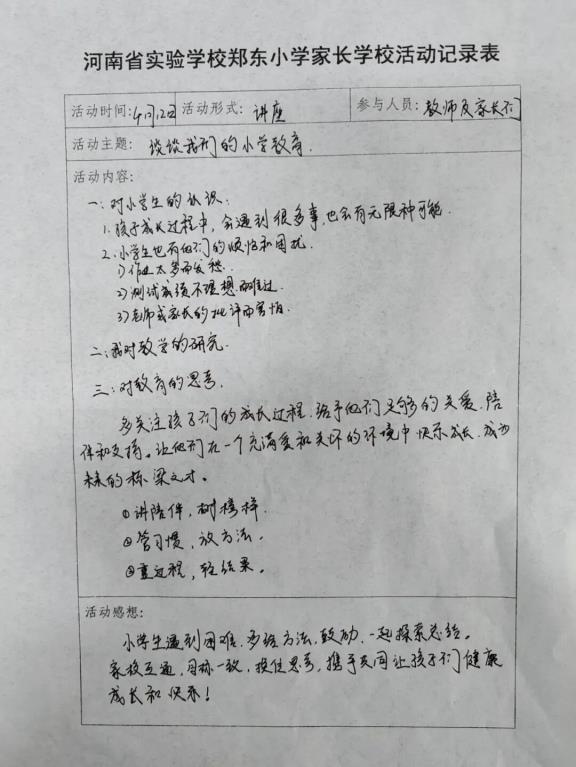 河南省实验学校郑东小学家长学校活动记录表
活动时间:4月12日 活动形式: 讲座 参与人员: 教师及家长们
活动主题: 谈谈我们的小学教育.
活动内容:
一:对小学生的认识:
1.孩子成长过程中,会遇到很多事,也会有无限种可能.
2.小学生也有他们的烦恼和困扰.
1)作业太多而发愁.
2)测试成绩不理想而难过.
3)老师或家长的批评而害怕.
二:我对教学的研究.
三:对教育的思考.
多关注孩子们的成长过程.给予他们足够的关爱.陪
伴和支持.让他们在一个充满爱和关怀的环境中快乐成长.成为
未来的栋梁之才.
①讲陪伴,树榜样.
②管习惯,放方法.
③重过程,轻结果.
活动感想:
小学生遇到困难.多给方法,鼓励.一起探索总结.
家校互通,目标一致,换位思考,携手共同让孩子们健康
成长和快乐!